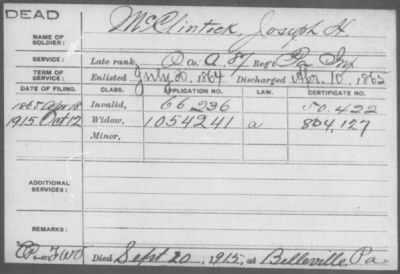 DEAD
NAME OF SOLDIER: McClintock, Joseph H.
SERVICE: Late rank, Co. A 87 Reg't Pa Inf
TERM OF SERVICE: Enlisted July 20, 1864 Discharged Apr. 10, 1865
DATE OF FILING. CLASS. APPLICATION NO. LAW. CERTIFICATE NO.
1865 Apr 18 Invalid, 66236 50.422
1915 Oct 12 Widow, 1054241 a 804,127
Minor,
ADDITIONAL SERVICES:
REMARKS:
Died Sept 20, 1915, at Belleville Pa